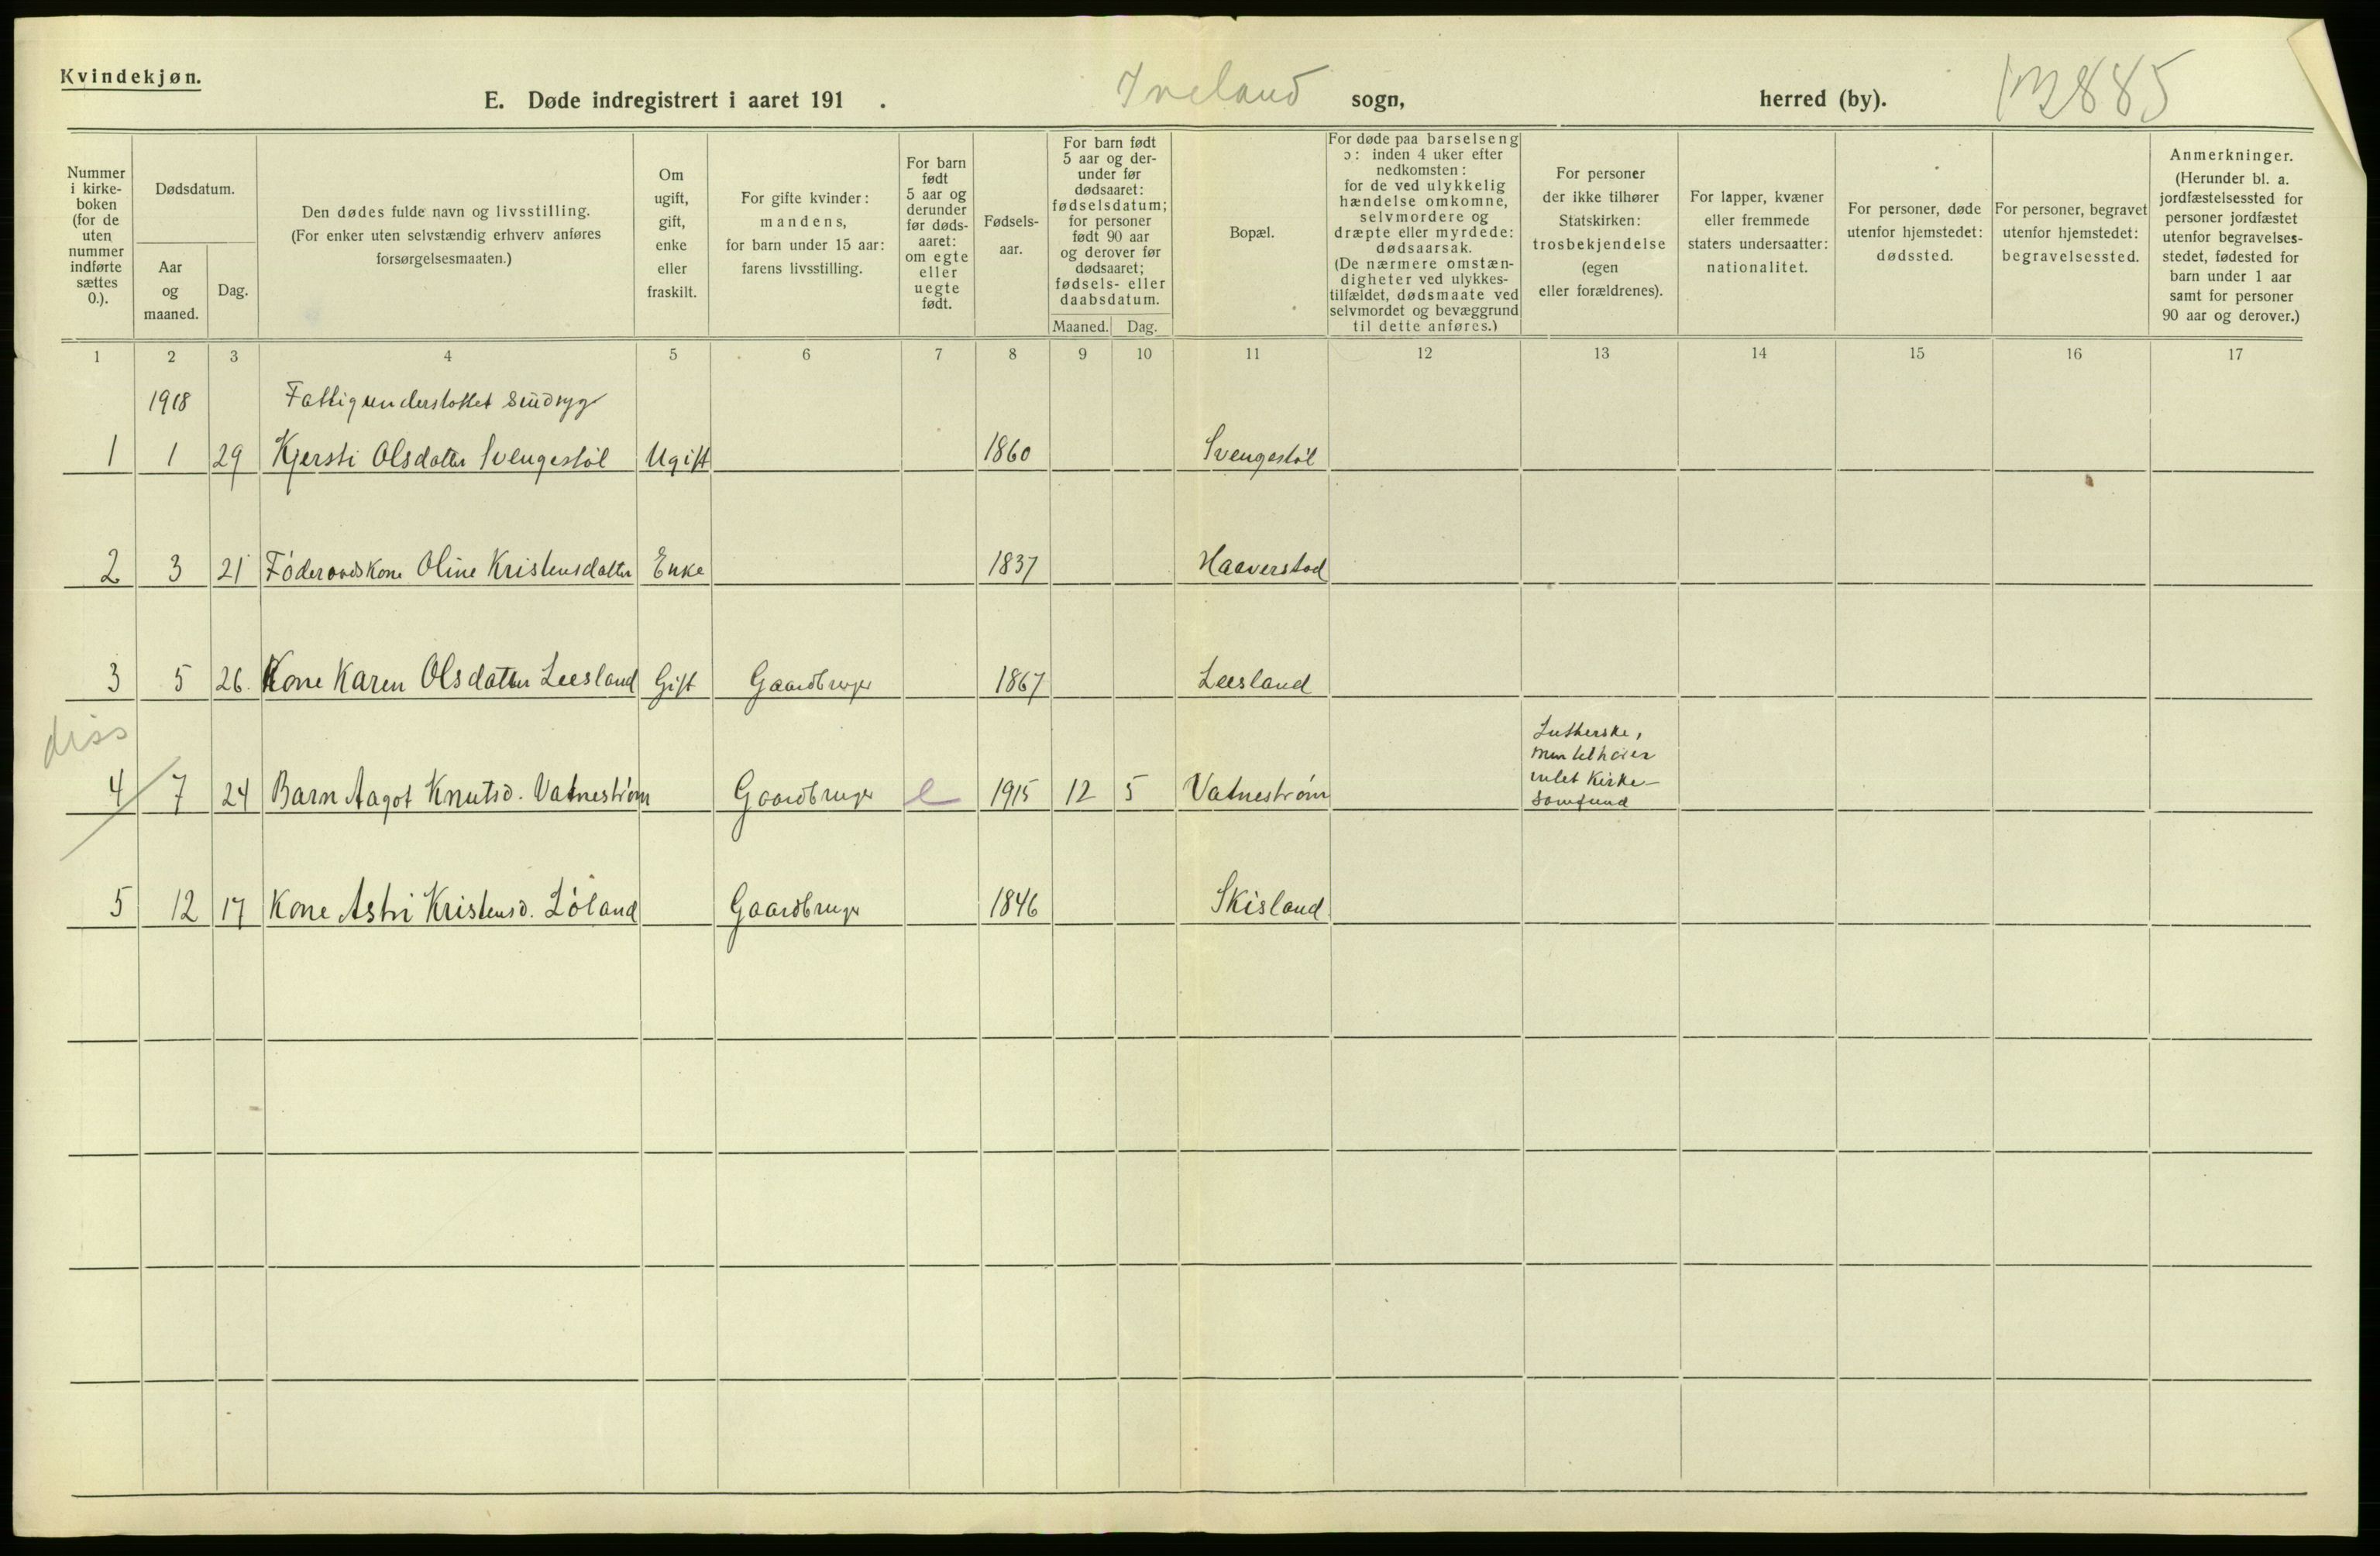 Kvindekjøn.
E. Døde indregistrert i aaret 191 .
Iveland sogn,
herred (by).
885
Nummer
i kirke-
boken
(for de
uten
nummer
indførte
sættes
0.).
Dødsdatum.
Aar
og
maaned.
Dag.
Den dødes fulde navn og livsstilling.
(For enker uten selvstændig erhverv anføres
forsørgelsesmaaten.)
Om
ugift,
gift,
enke
eller
fraskilt.
For gifte kvinder:
mandens,
for barn under 15 aar:
farens livsstilling.
For barn
født
5 aar og
derunder
før døds-
aaret:
om egte
eller
uegte
født.
Fødsels-
aar.
For barn født
5 aar og der-
under før
dødsaaret:
fødselsdatum;
for personer
født 90 aar
og derover før
dødsaaret;
fødsels- eller
daabsdatum.
Maaned. Dag.
Bopæl.
For døde paa barselseng
ɔ: inden 4 uker efter
nedkomsten:
for de ved ulykkelig
hændelse omkomne,
selvmordere og
dræpte eller myrdede:
dødsaarsak.
(De nærmere omstæn-
digheter ved ulykkes-
tilfældet, dødsmaate ved
selvmordet og bevæggrund
til dette anføres.)
For personer
der ikke tilhører
Statskirken:
trosbekjendelse
(egen
eller forældrenes).
For lapper, kvæner
eller fremmede
staters undersaatter:
nationalitet.
For personer, døde
utenfor hjemstedet:
dødssted.
For personer, begravet
utenfor hjemstedet:
begravelsessted.
Anmerkninger.
(Herunder bl. a.
jordfæstelsessted for
personer jordfæstet
utenfor begravelses-
stedet, fødested for
barn under 1 aar
samt for personer
90 aar og derover.)
1 2 3 4 5 6 7 8 9 10 11 12 13 14 15 16 17
1918 Fattigunderstøttet
1 1 29 Kjersti Olsdatter Svengestöl Ugift 1860 Svengestöl
2 3 21 Föderaadskone Oline Kristensdatter Enke 1837 Haaverstad
3 5 26. Kone Karen Olsdatter Leesland Gift Gaardbruger 1867 Leesland
diss
4 7 24 Barn Aagot Knutsd. Vatneström Gaardbruger e 1915 12 5 Vatneström
Lutherske,
men tilhörer
intet Kirke-
samfund
5 12 17 Kone Astri Kristensd. Löland Gaardbruger 1846 Skisland